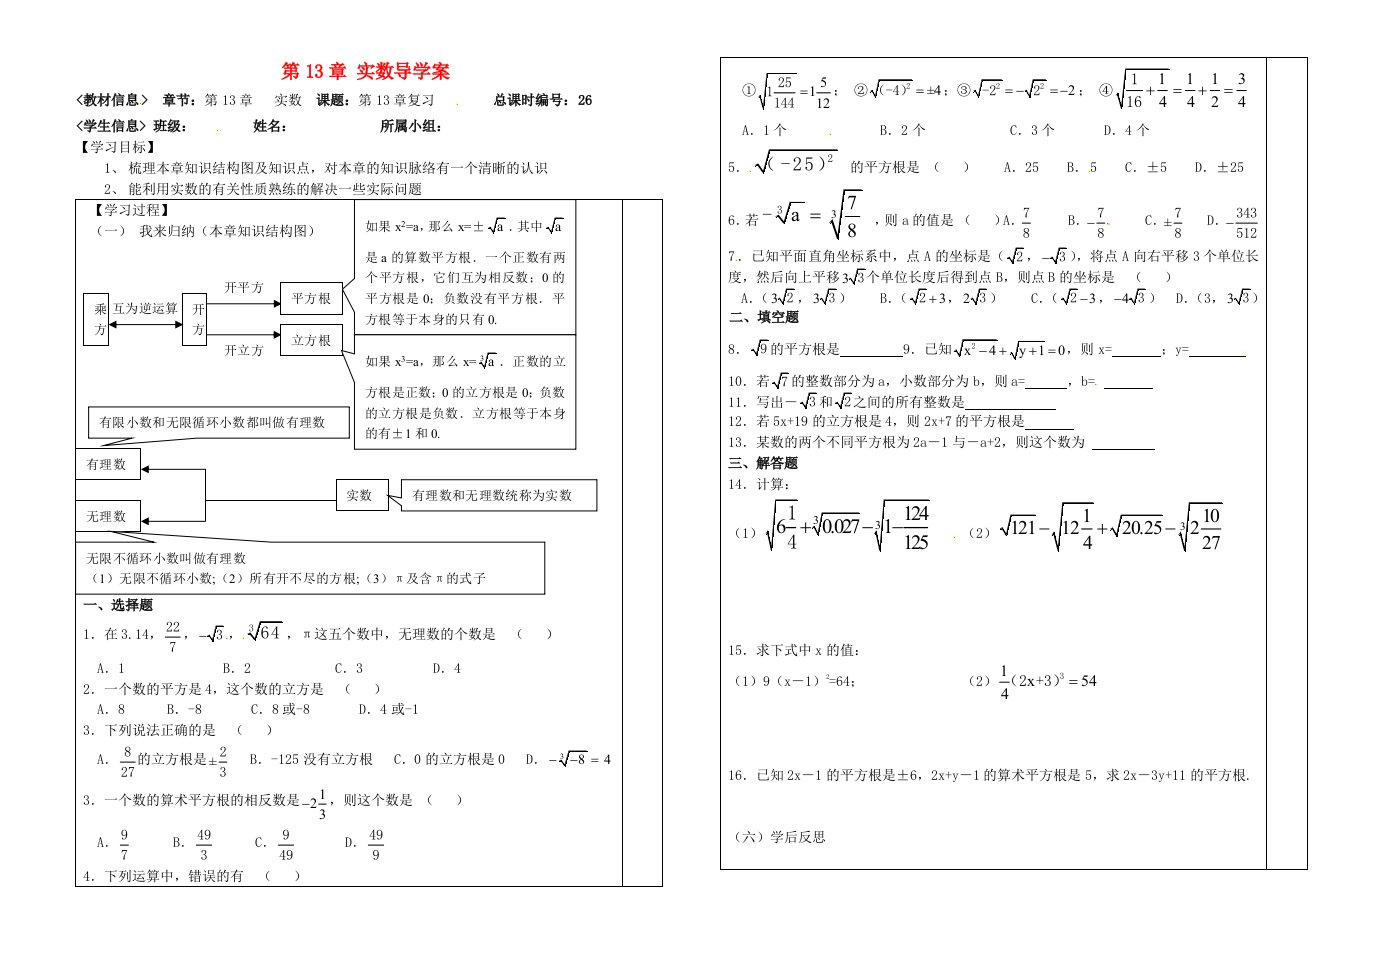 第 13 章 实数导学案
<教材信息> 章节：第 13 章 实数 课题：第 13 章复习 总课时编号：26
<学生信息> 班级： 姓名： 所属小组：
【学习目标】
1、 梳理本章知识结构图及知识点，对本章的知识脉络有一个清晰的认识
2、 能利用实数的有关性质熟练的解决一些实际问题
【学习过程】
（一） 我来归纳（本章知识结构图）
如果 x²=a，那么 x=±√a．其中√a
是 a 的算数平方根．一个正数有两
个平方根，它们互为相反数；0 的
平方根是 0；负数没有平方根．平
方根等于本身的只有 0.
乘方
互为逆运算
开方
开平方
平方根
开立方
立方根
如果 x³=a，那么 x=∛a．正数的立
方根是正数；0 的立方根是 0；负数
的立方根是负数．立方根等于本身
的有±1 和 0.
有限小数和无限循环小数都叫做有理数
有理数
实数
有理数和无理数统称为实数
无理数
无限不循环小数叫做有理数
（1）无限不循环小数;（2）所有开不尽的方根;（3）π及含π的式子
一、选择题
1．在 3.14，22/7，−√3，∛64，π这五个数中，无理数的个数是 （ ）
A．1 B．2 C．3 D．4
2．一个数的平方是 4，这个数的立方是 （ ）
A．8 B．-8 C．8 或-8 D．4 或-1
3．下列说法正确的是 （ ）
A．8/27的立方根是±2/3 B．-125 没有立方根 C．0 的立方根是 0 D．−∛−8 = 4
3．一个数的算术平方根的相反数是−2 1/3，则这个数是 （ ）
A．9/7 B．49/3 C．9/49 D．49/9
4．下列运算中，错误的有 （ ）
①√(1 25/144)=1 5/12；②√(−4)²=±4；③√−2²=−√2²=−2；④√(1/16+1/4)=1/4+1/2=3/4
A．1 个 B．2 个 C．3 个 D．4 个
5．√(−25)² 的平方根是 （ ） A．25 B．5 C．±5 D．±25
6．若−∛a = ∛(7/8)，则 a 的值是（ ）A．7/8 B．−7/8 C．±7/8 D．−343/512
7．已知平面直角坐标系中，点 A 的坐标是（√2，−√3），将点 A 向右平移 3 个单位长
度，然后向上平移3√3个单位长度后得到点 B，则点 B 的坐标是 （ ）
A．（3√2，3√3） B．（√2+3，2√3） C．（√2−3，−4√3） D．（3，3√3）
二、填空题
8．√9的平方根是________ 9．已知√(x²−4)+√(y+1)=0，则 x=______；y=_______
10．若√7的整数部分为 a，小数部分为 b，则 a=_____，b=______
11．写出－√3和√2之间的所有整数是____________
12．若 5x+19 的立方根是 4，则 2x+7 的平方根是______
13．某数的两个不同平方根为 2a－1 与－a+2，则这个数为 ________
三、解答题
14．计算：
（1）√(6 1/4)+∛0.027−∛(1−124/125) （2）√121−√(12 1/4)+√20.25−∛(2 10/27)
15．求下式中 x 的值：
（1）9（x－1）²=64； （2）1/4（2x+3）³ = 54
16．已知 2x－1 的平方根是±6，2x+y－1 的算术平方根是 5，求 2x－3y+11 的平方根.
（六）学后反思